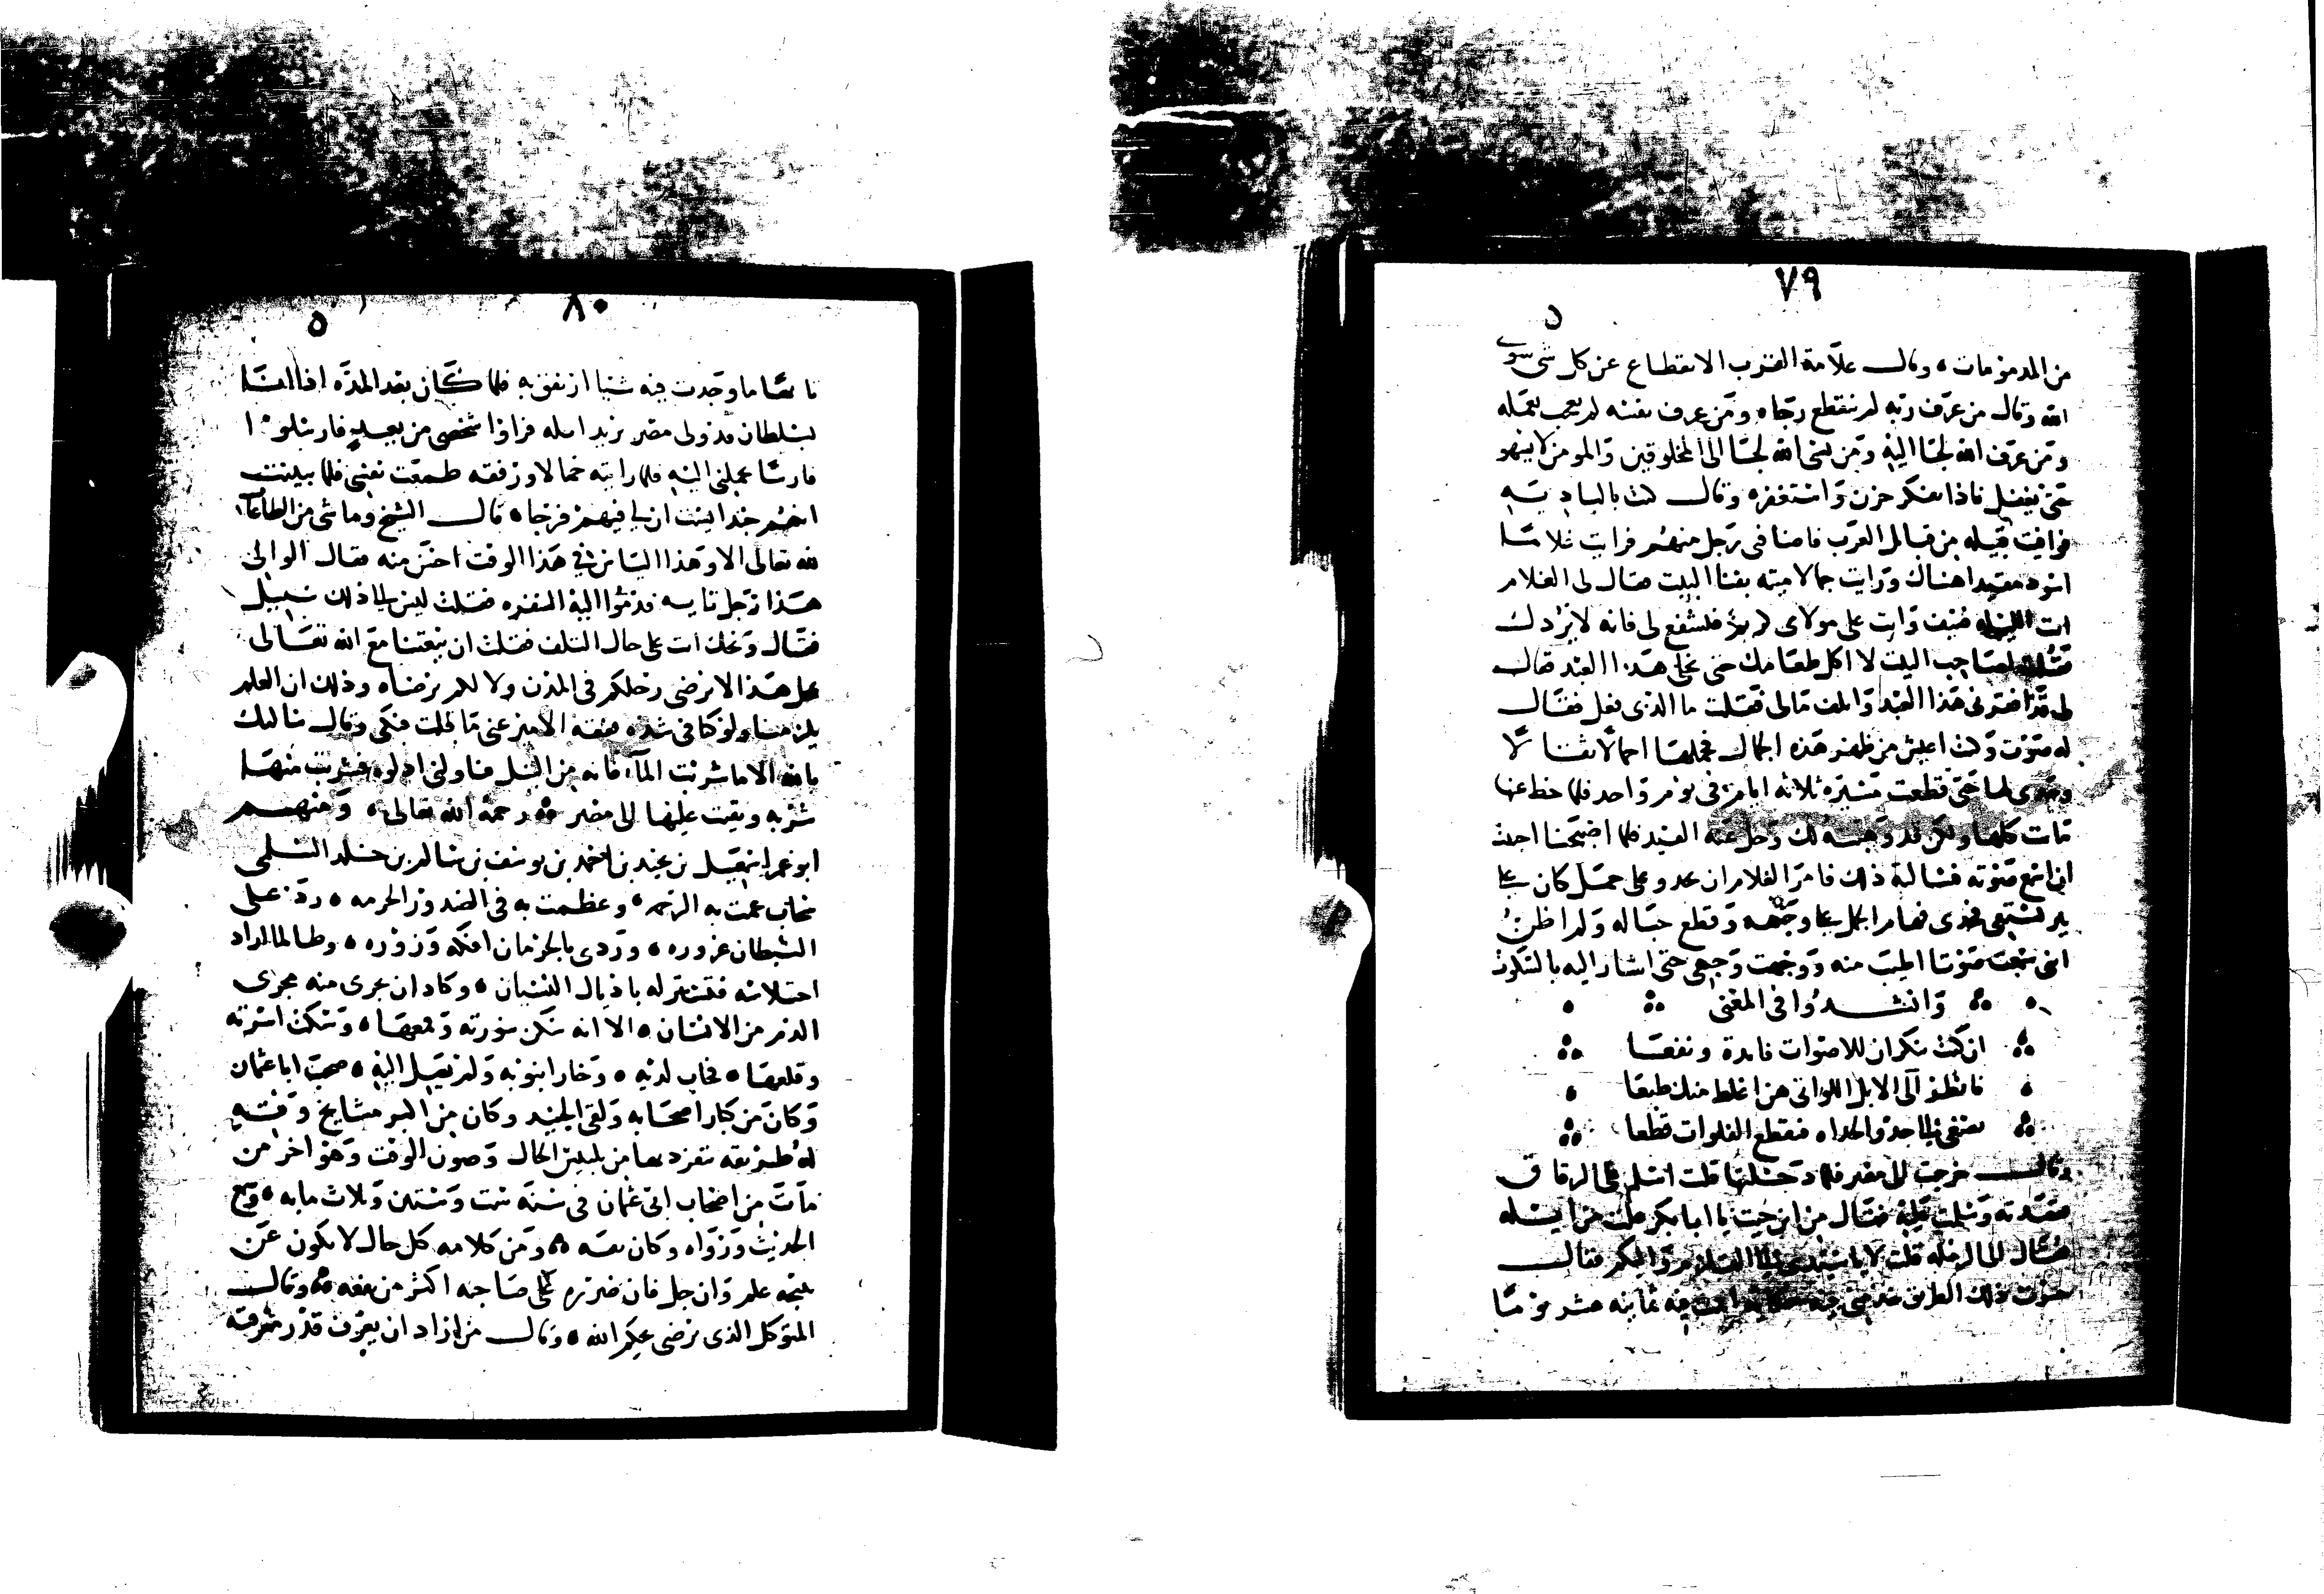 ٧٩
من المذمومات ٥ وقال علامة القرب الانقطاع عن كل شي سوى
الله وقال من عرف ربه لم ينقطع رجاه ومن عرف نفسه لم يعجب بعمله
ومن عرف الله لجا اليه ومن نسي الله لجا الى المخلوقين والمومن لا يسهو
حتى يغفل فاذا تفكر حزن واستغفره وقال كنت بالباديـة
فوافيت قبيله من قبايل العرب فاضافنى رجل منهم فرايت غلاما
اسود مقيدا هناك ورايت جمالا ميته بفنا البيت فقال لى الغلام
انت الليله ضيف وانت على مولاى كريم فتشفع لى فانه لا يردك
فقلت لصاحب البيت لا اكل طعامك حتى تحل هذا العبد فقال
لى قد افقرنى هذا العبد واتلف مالى فقلت ما الذى فعل فقال
له صوت وكنت اعيش من ظهر هذه الجمال فحملها احمالا ثقالا
وحدى لها حتى قطعت مسيرة ثلاثه ايام فى يوم واحد فلما حط عنها
ماتت كلها ولكن قد وهبته لك وحل عنه القيد فلما اصبحنا احببت
ان اسمع صوته فسالته ذلك فامر الغلام ان يحدو على جمل كان على
بير يستقى فحدى فهام الجمل على وجهه وقطع حباله ولم اظن
انى سمعت صوتا اطيب منه ووقعت وجهى حتى اشار اليه بالسكوت
وانشـــدوا فى المعنى
ان كنت تنكر ان للاصوات فايدة ونفعـا
فانظر الى الابل اللواتى هن اغلظ منك طبعا
تصغى الى حدو الحداه فتقطع الفلوات قطعا
وقال خرجت الى مصر فلما دخلتها قلت اسلم على الرقاق
فقصدته وسلمت عليه فقال من اين جيت يا ابا بكر قلت من ايله
٨٠
تايها ما وجدت فيه شيا ارتفق به فلما كان بعد المده اذا انا
بسلطان قد ولى مصر يريد ايله فراوا شخصى من بعيد فارسلوا
فارسا يحملنى اليه فلما رايته خمالا ورفقه طمعت نفسى فلما تبينت
انهم جند ايست ان لى فيهم فرجا ٥ قال الشيخ وما شى من الطاعات
لله تعالى الا وهذا الياس فى هذا الوقت احسن منه فقال الوالى
هذا رجل تايه قدموا اليه السفره فقلت ليس لى الى ذلك سبيل
فقال ويحك انت على حال التلف فقلت ان بيعتنا مع الله تعالى
على هذا لا نرضى دخلكم فى المدن ولا لكم نرضاه وذلك ان العلم
يلزمنا ولو كنا فى شده ففقه الامير عنى ما قلت فبكى وقال سالتك
بالله الا ما شربت الماء فانه من النيل فناولنى اداوه فشربت منها
شربه وبقيت عليها الى مصر رحمه الله تعالى ٥ ومنهــم
ابو عمر اسمعيل بن نجيد بن احمد بن يوسف بن سالم بن خلد السلمى
سحاب عمت به الرحمه ٥ وعظمت به فى الصدور الحرمه ٥ رد على
الشيطان غروره ٥ وردى بالحرمان افكه وزوره ٥ وطالما اراد
اختلاسه فتستر له باذيال النسيان ٥ وكاد ان يجرى منه مجرى
الدم من الانسان ٥ الا انه سكن سورته وقمعها ٥ وسكن اسرته
وقلعها ٥ فخاب لديه ٥ وحار ابنوبه ولم يقبل اليه ٥ صحب ابا عثمان
وكان من كبار اصحابه ولقى الجنيد وكان من اكبر مشايخ وقته
له طريقه تفرد بها من تلبيس الحال وصون الوقت وهو اخر من
مات من اصحاب ابى عثمان فى سنة ست وستين وثلاث مايه ٥ وسمع
الحديث ورواه وكان ثقه ومن كلامه كل حال لا يكون عن
نتيجه علم وان جل فان ضرره على صاحبه اكثر من نفعه وقال
المتوكل الذى يرضى بحكم الله ٥ وقال من اراد ان يعرف قدر معرفته